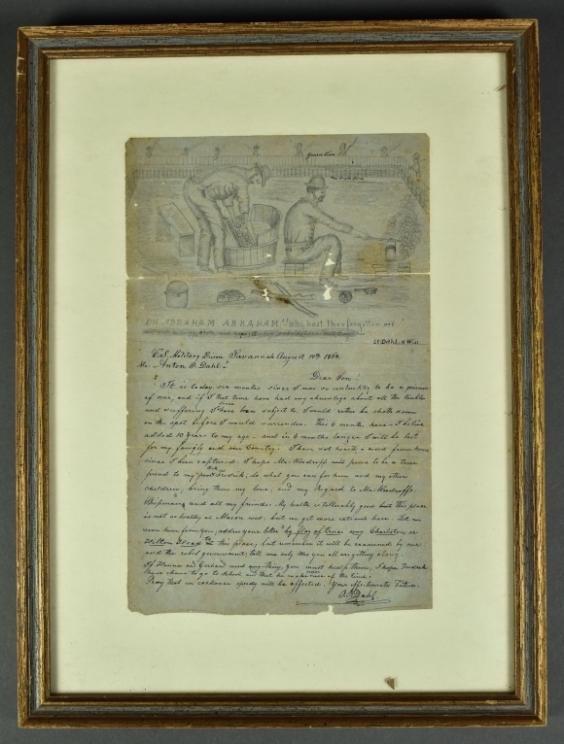 OH ABRAHAM ABRAHAM! Why hast thou forgotten me!
Lt Dahl. 15 Wis.
C.S. Military Prison Savannah August 10th 1864
Mr. Anton O. Dahl!
Dear Son!
It is today six months since I was so unlucky to be a prisoner
of war, and if I that time have had any knowledge about all the troubles
and suffering I have been subject to I would rather be shot down
on the spot before I would surrender. This 6 months have I believe
added 10 year to my age, and in 6 months longer I will be lost
for my family and our Country. I have not heard a word from home
since I was captured. I hope Mr. Woodruff will prove to be a true
friend to my poor Fredrik, do what you can for him and my other
children, bring them my love, and my regard to Mr. Woodruffs,
and all my friends. My health is tollerably good but this place
is not so healthy as Macon was, but we get more rations here. Let me
soon hear from you, address your letter by flag of truce way Charleston or
Hilton Head to this place, but remember it will be examined by
and the rebel government, tell me only how you all are getting along.
If Hanna and Gerhard need anything, you must help them, I hope Fredrik
have chance to go to school and that he makes use of the time.
Pray that an exchange speedy will be effected. Your affectionate Father.
Dahl